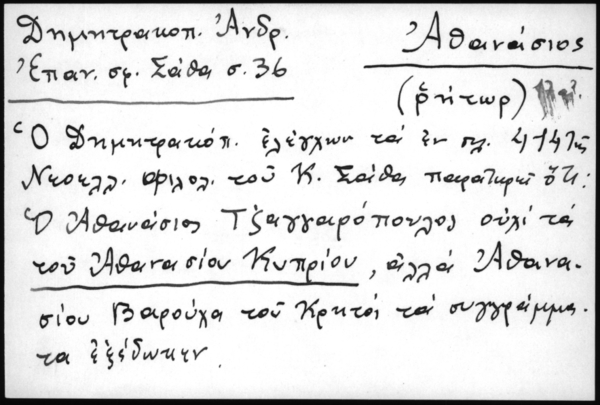 Δημητρακοπ. Ἀνδρ.
Ἐπαν. σφ. Σάθα σ. 36
Ἀθανάσιος
(ῥήτωρ)
Ὁ Δημητρακόπ. ἐλέγχων τά ἐν σελ. 414 τῆς
Νεοελλ. Φιλολ. τοῦ Κ. Σάθα παρατηρεῖ ὅτι:
Ὁ Ἀθανάσιος Τζαγγαρόπουλος οὐχί τά
τοῦ Ἀθανασίου Κυπρίου, ἀλλά Ἀθανα-
σίου Βαρούχα τοῦ Κρητός τά συγγράμμα-
τα ἐξέδωκεν.